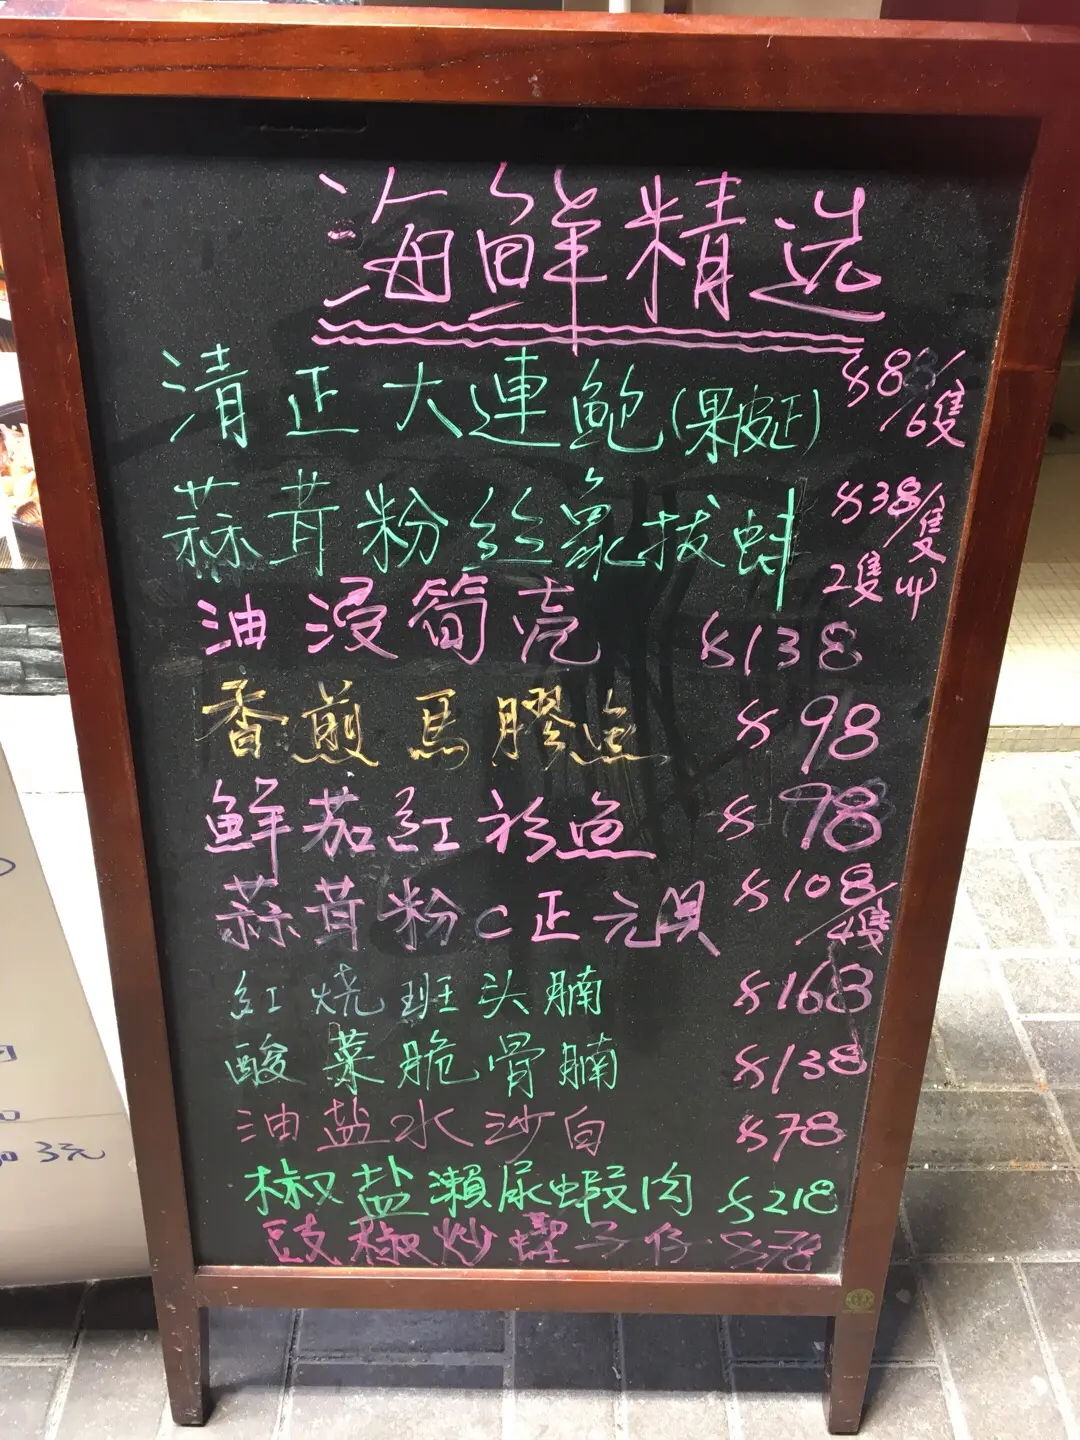 海鮮精选
清正大連鮑(果皮正) $88/6隻
蒜茸粉丝象拔蚌 $38/隻
2隻叫
油浸筍壳 $138
香煎馬膠鱼 $98
鮮茄紅衫鱼 $98
蒜茸粉C正元貝 $108/4隻
紅烧班头腩 $168
酸菜脆骨腩 $138
油盐水沙白 $78
椒盐瀨尿蝦肉 $218
豉椒炒蟶子仔 $78
3元